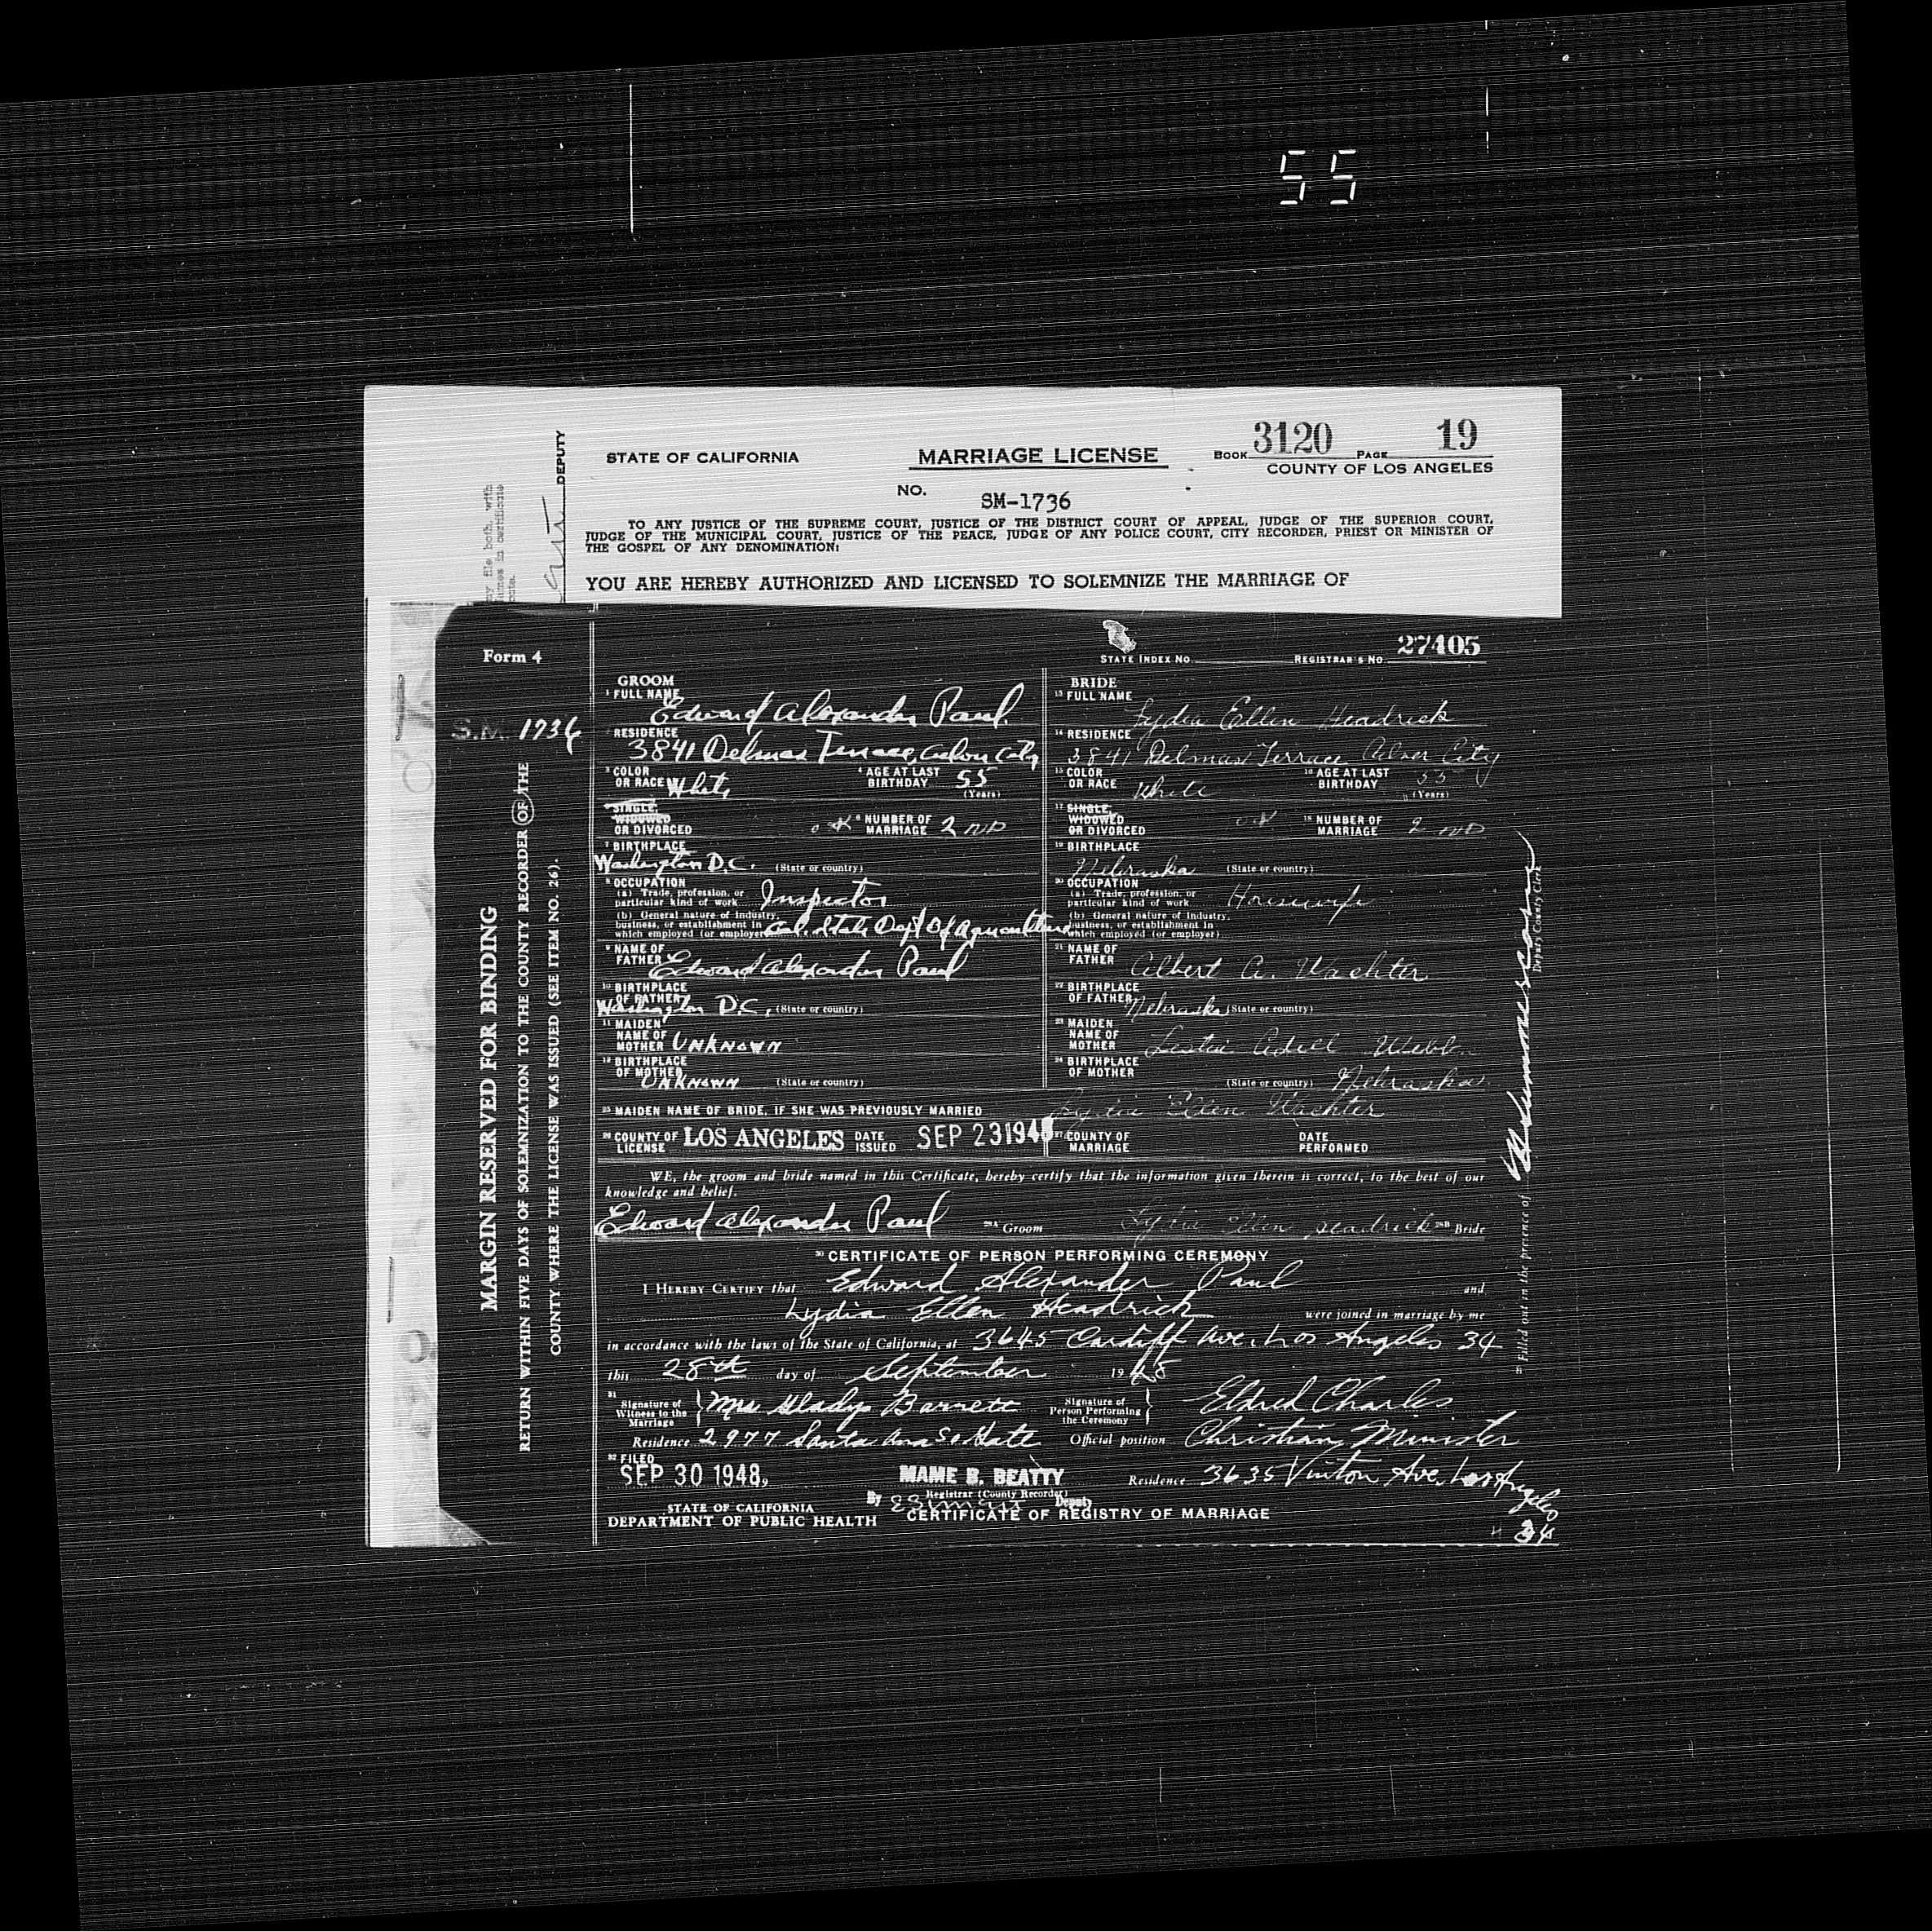 55
STATE OF CALIFORNIA MARRIAGE LICENSE BOOK 3120 PAGE 19
COUNTY OF LOS ANGELES
NO. SM-1736
TO ANY JUSTICE OF THE SUPREME COURT, JUSTICE OF THE DISTRICT COURT OF APPEAL, JUDGE OF THE SUPERIOR COURT,
JUDGE OF THE MUNICIPAL COURT, JUSTICE OF THE PEACE, JUDGE OF ANY POLICE COURT, CITY RECORDER, PRIEST OR MINISTER OF
THE GOSPEL OF ANY DENOMINATION:
YOU ARE HEREBY AUTHORIZED AND LICENSED TO SOLEMNIZE THE MARRIAGE OF
DEPUTY
file both with
names in certificate
Form 4
S.M. 1736
MARGIN RESERVED FOR BINDING
RETURN WITHIN FIVE DAYS OF SOLEMNIZATION TO THE COUNTY RECORDER OF THE
COUNTY WHERE THE LICENSE WAS ISSUED (SEE ITEM NO. 26).
STATE INDEX NO. REGISTRAR'S NO. 27405
GROOM
1 FULL NAME Edward Alexander Paul
RESIDENCE 3841 Delmas Terrace, Culver City
3 COLOR OR RACE White 4 AGE AT LAST BIRTHDAY 55 (Years)
SINGLE, WIDOWED OR DIVORCED 6 NUMBER OF MARRIAGE 2 ND
7 BIRTHPLACE Washington D.C. (State or country)
8 OCCUPATION
(a) Trade, profession, or particular kind of work Inspector
(b) General nature of industry, business, or establishment in which employed (or employer) Cal. State Dept of Agriculture
9 NAME OF FATHER Edward Alexander Paul
10 BIRTHPLACE OF FATHER Washington D.C. (State or country)
11 MAIDEN NAME OF MOTHER UNKNOWN
12 BIRTHPLACE OF MOTHER UNKNOWN (State or country)
BRIDE
13 FULL NAME Lydia Ellen Headrick
14 RESIDENCE 3841 Delmas Terrace Culver City
15 COLOR OR RACE White 16 AGE AT LAST BIRTHDAY 55 (Years)
17 SINGLE, WIDOWED OR DIVORCED 18 NUMBER OF MARRIAGE 2 ND
19 BIRTHPLACE Nebraska (State or country)
20 OCCUPATION
(a) Trade, profession, or particular kind of work Housewife
(b) General nature of industry, business, or establishment in which employed (or employer)
21 NAME OF FATHER Albert A. Wachter
22 BIRTHPLACE OF FATHER Nebraska (State or country)
23 MAIDEN NAME OF MOTHER Webb
24 BIRTHPLACE OF MOTHER (State or country) Nebraska
25 MAIDEN NAME OF BRIDE, IF SHE WAS PREVIOUSLY MARRIED Lydia Ellen Wachter
26 COUNTY OF LICENSE LOS ANGELES DATE ISSUED SEP 23 1948 27 COUNTY OF MARRIAGE DATE PERFORMED
WE, the groom and bride named in this Certificate, hereby certify that the information given therein is correct, to the best of our
knowledge and belief.
Edward Alexander Paul 28A Groom Lydia Ellen Headrick 28B Bride
30 CERTIFICATE OF PERSON PERFORMING CEREMONY
I HEREBY CERTIFY that Edward Alexander Paul and
Lydia Ellen Headrick were joined in marriage by me
in accordance with the laws of the State of California, at 3645 Cardiff Ave. Los Angeles 34
this 28th day of September 1948
31 Signature of Witness to the Marriage Mrs Gladys Barnett Signature of Person Performing the Ceremony Eldred Charles
Residence 2977 Santa Ana So Gate Official position Christian Minister
32 FILED
SEP 30 1948, MAME B. BEATTY Residence 3635 Vinton Ave, Los Angeles
34
Registrar (County Recorder)
By Deputy
STATE OF CALIFORNIA
DEPARTMENT OF PUBLIC HEALTH CERTIFICATE OF REGISTRY OF MARRIAGE
Filled out in the presence of
Deputy County Clerk